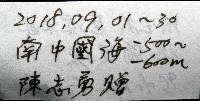 2018.09.01~30
南中國海 -500~
-600m
陳志勇贈